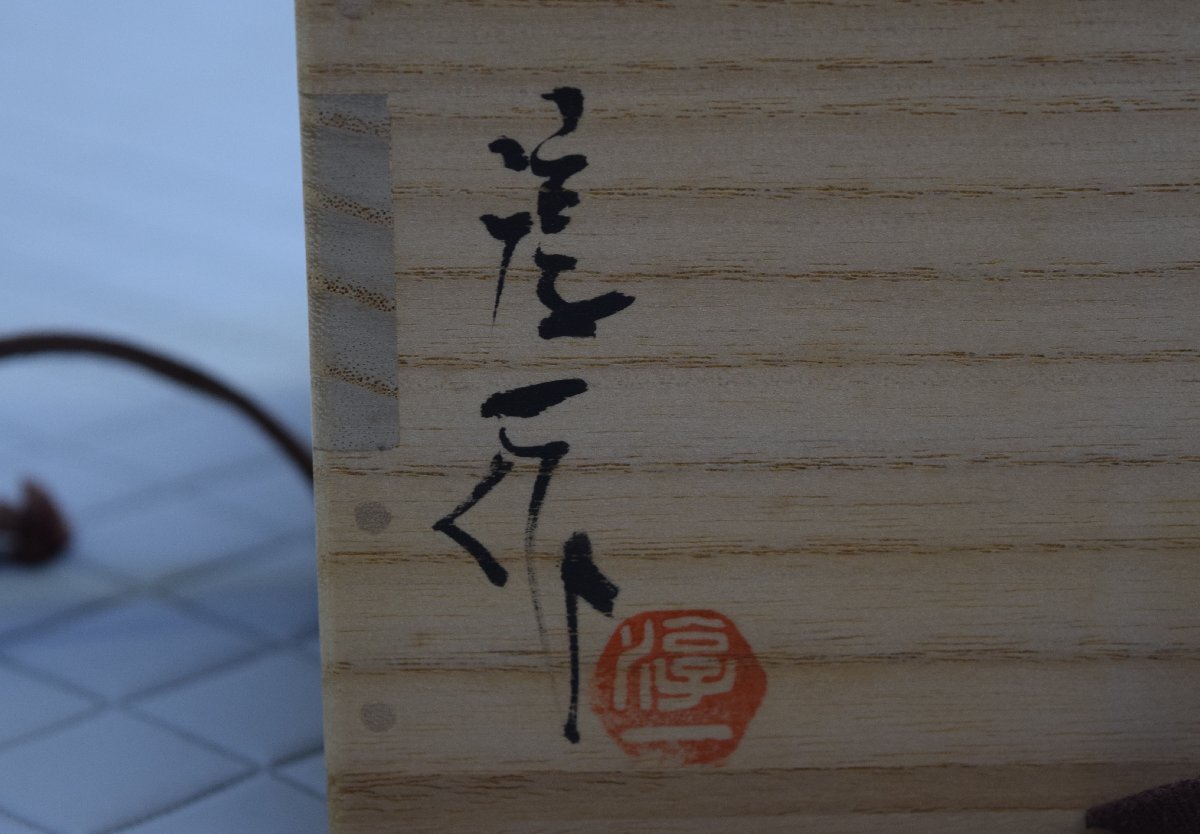 淳一
淳一